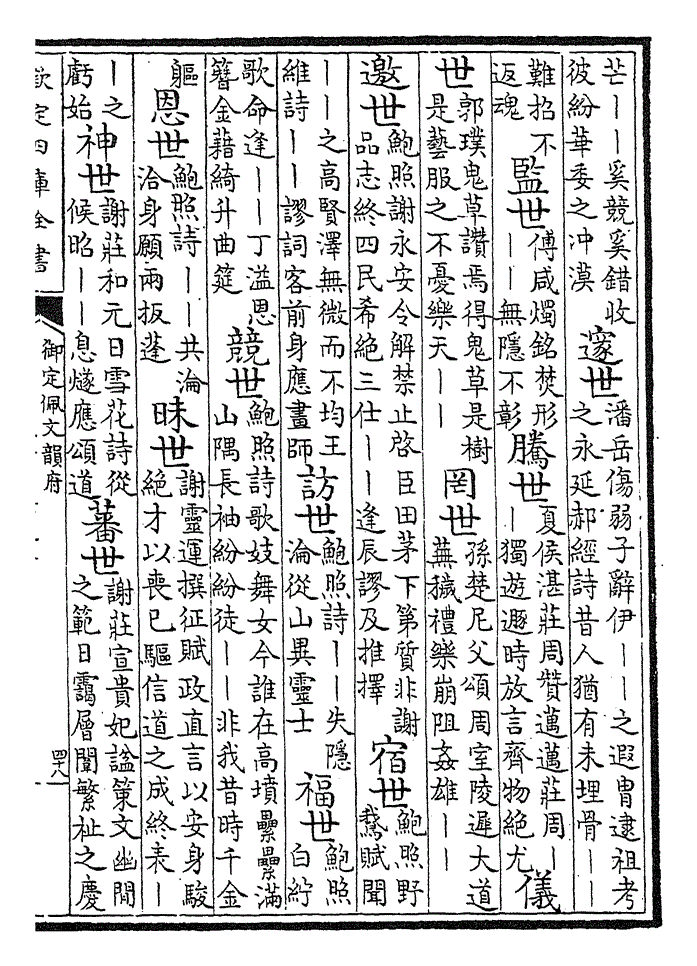 芒丨丨奚競奚錯收彼紛華委之沖漠 邃世 潘岳傷弱子辭伊丨丨之遐胄逮祖考之永延郝經詩昔人猶有未埋骨丨丨
難招不返魂 監世 傅咸燭銘焚形丨丨無隱不彰 騰世 夏侯湛莊周贊邁邁莊周丨丨獨遊遯時放言齊物絕尤 儀
世 郭璞鬼草讚焉得鬼草是樹是藝服之不憂樂天丨丨 罔世 孫楚尼父頌周室陵遲大道蕪穢禮樂崩阻姦雄丨丨
邀世 鮑照謝永安令解禁止啓臣田茅下第質非謝品志終四民希絕三仕丨丨逢辰謬及推擇 宿世 鮑照野鵞賦聞
丨丨之高賢澤無微而不均王維詩丨丨謬詞客前身應畫師 訪世 鮑照詩丨丨失隱淪從山異靈士 福世 鮑照白紵
歌命逢丨丨丁溢恩簪金藉綺升曲筵 競世 鮑照詩歌妓舞女今誰在高墳纍纍滿山隅長袖紛紛徒丨丨非我昔時千金
軀 恩世 鮑照詩丨丨共淪洽身願兩扳蓬 昧世 謝靈運撰征賦政直言以安身駿絕才以喪已驅信道之成終表丨
丨之虧始 神世 謝莊和元日雪花詩從候昭丨丨息燧應頌道 蕃世 謝莊宣貴妃諡策文幽閒之範日靄層闈繁祉之慶
欽定四庫全書
御定佩文韻府
四十八